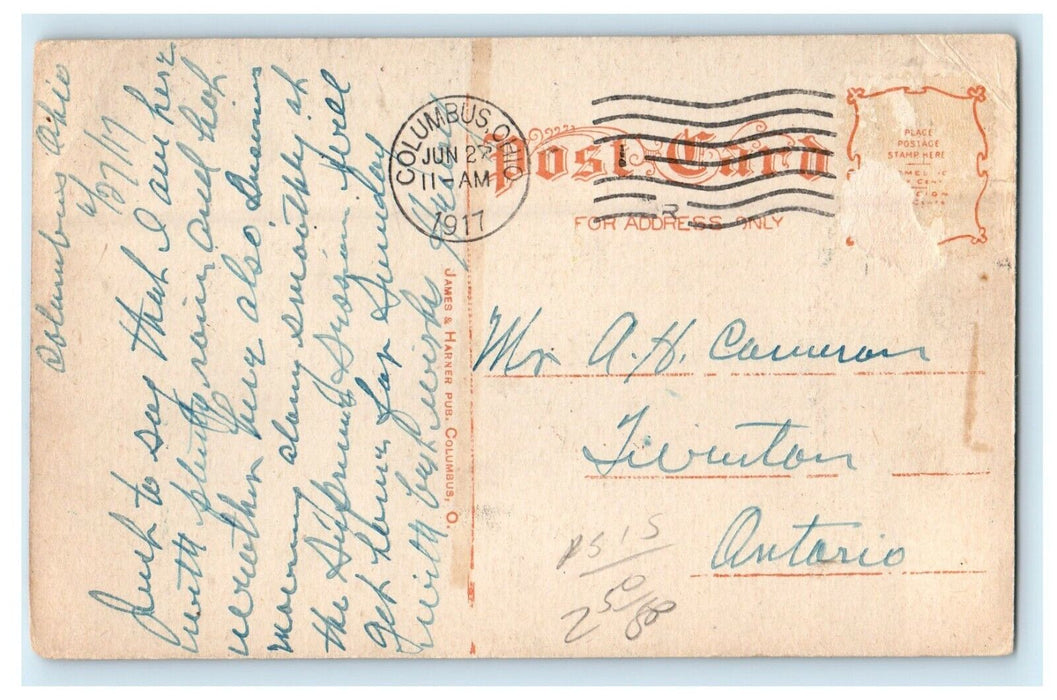 Columbus Ohio
6/27/17
Just to say that I am here
with plenty rain and hot
weather here also. Drums
moving along smoothly at
the Supreme Session. Will
get home for Sunday
with best wishes
COLUMBUS, OHIO
JUN 27
11-AM
1917
Post Card
FOR ADDRESS ONLY
PLACE
POSTAGE
STAMP HERE
JAMES & HARNER PUB. COLUMBUS, O.
Mr A. H. Cameron
Tiverton
Ontario
PS 15
2 50/